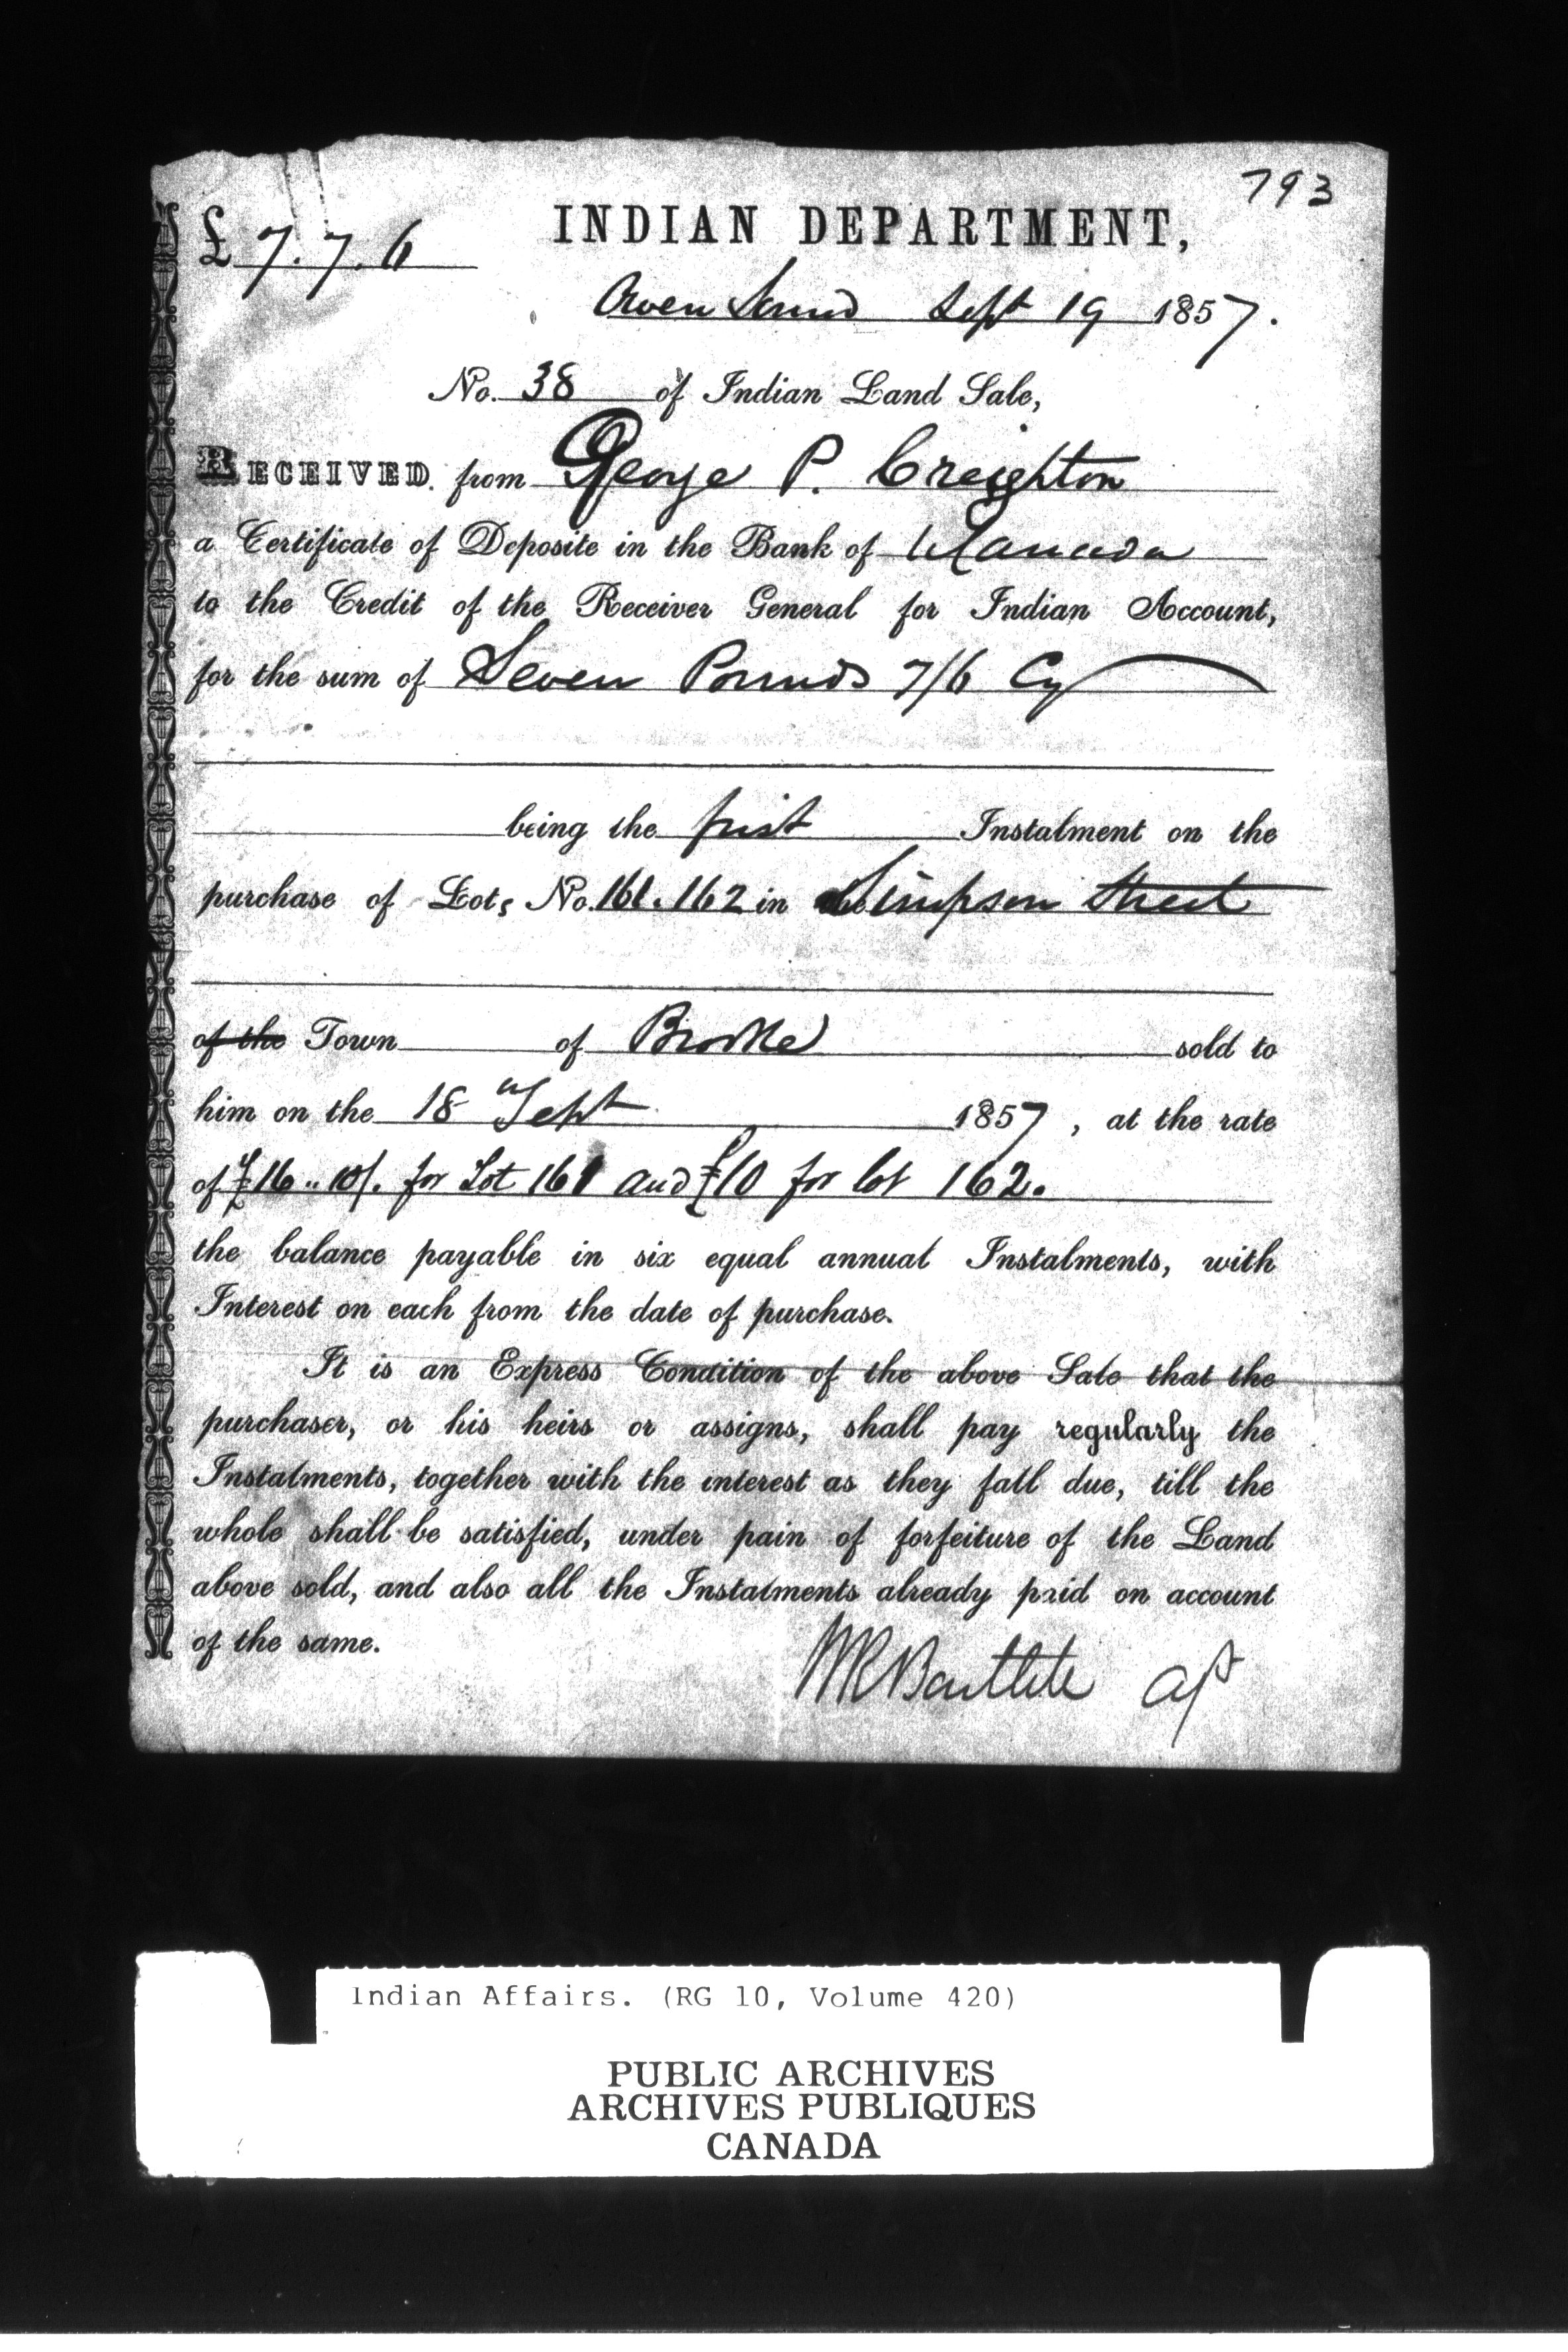 793
£ 7.7.6 INDIAN DEPARTMENT,
Owen Sound Sept 19 1857.
No. 38 of Indian Land Sale,
RECEIVED from George P. Creighton
a Certificate of Deposite in the Bank of U Canada
to the Credit of the Receiver General for Indian Account,
for the sum of Seven Pounds 7/6 Cy
being the first Instalment on the
purchase of Lots No. 161. 162 in Simpson Street
of the Town of Brooke sold to
him on the 18th Sept 1857, at the rate
of £16..10/. for Lot 161 and £10 for lot 162.
the balance payable in six equal annual Instalments, with
Interest on each from the date of purchase.
It is an Express Condition of the above Sale that the
purchaser, or his heirs or assigns, shall pay regularly the
Instalments, together with the interest as they fall due, till the
whole shall be satisfied, under pain of forfeiture of the Land
above sold, and also all the Instalments already paid on account
of the same.
WRBartlett
Indian Affairs. (RG 10, Volume 420)
PUBLIC ARCHIVES
ARCHIVES PUBLIQUES
CANADA